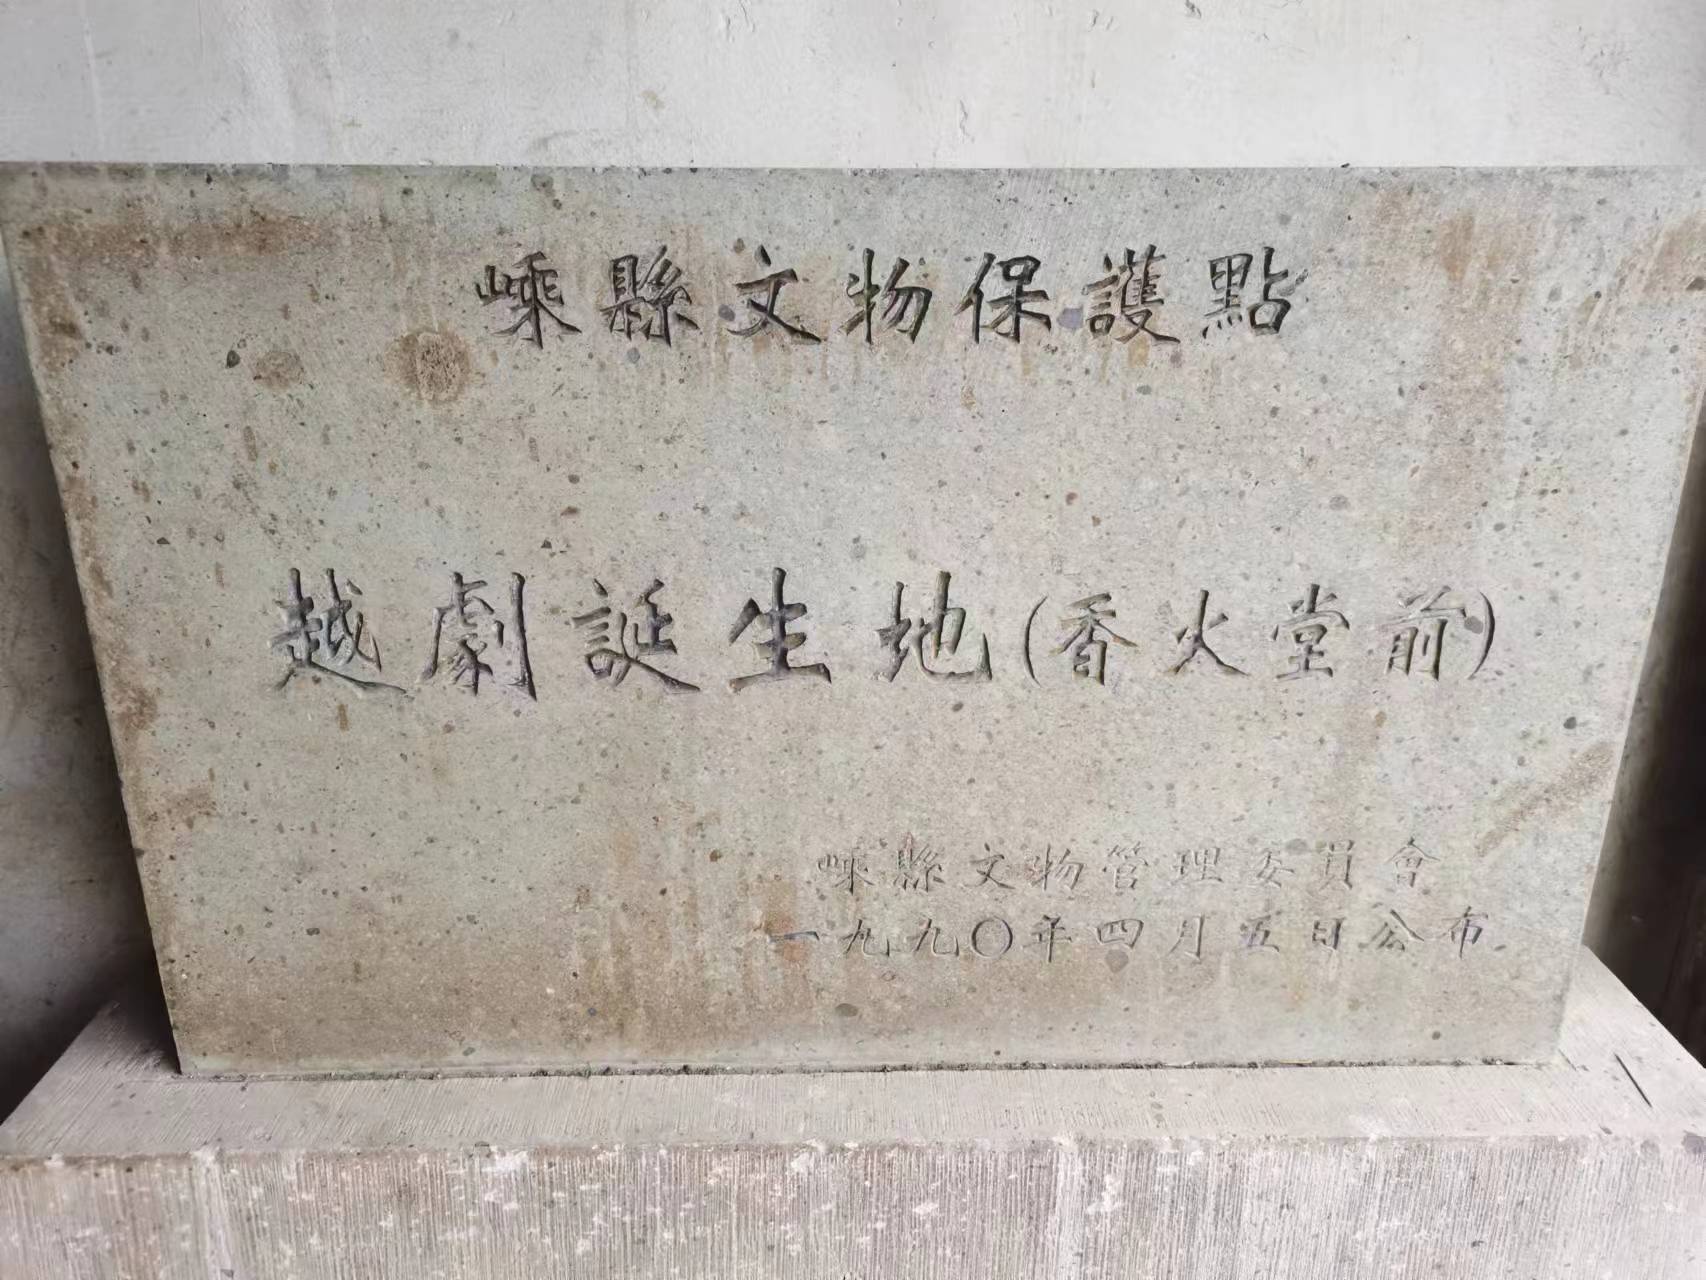 嵊縣文物保護點
越劇誕生地(香火堂前)
嵊縣文物管理委員會
一九九〇年四月五日公布